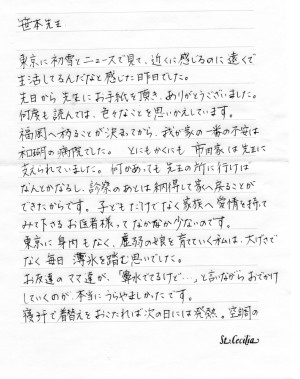 笹本先生
東京に初雪とニュースで見て、近くに感じるのに遠くで
生活してるんだなと感じた昨日でした。
先日から先生にお手紙を頂き、ありがとうございました。
何度も読んでは、色々なことを思いかえしています。
福岡へ移ることが決まってから、我が家の一番の不安は
和嗣の病院でした。とにもかくにも市田家は先生に
支えられていました。何かあっても先生の所に行けば
なんとかなるし、診察のあとは納得して家へ戻ることが
できたからです。子どもだけでなく家族へ愛情を持て
みて下さるお医者様ってなかなか少ないのです。
東京に身内もなく、虚弱の娘を育ていく私は、大げさで
なく毎日薄氷を踏む思いでした。
お友達のママ達が、「鼻水でてるけど…」と言いながらおでかけ
していくのが、本当にうらやましかったです。
寝汗で着替えをおこたれば次の日には発熱。空調の
St.Cecilia